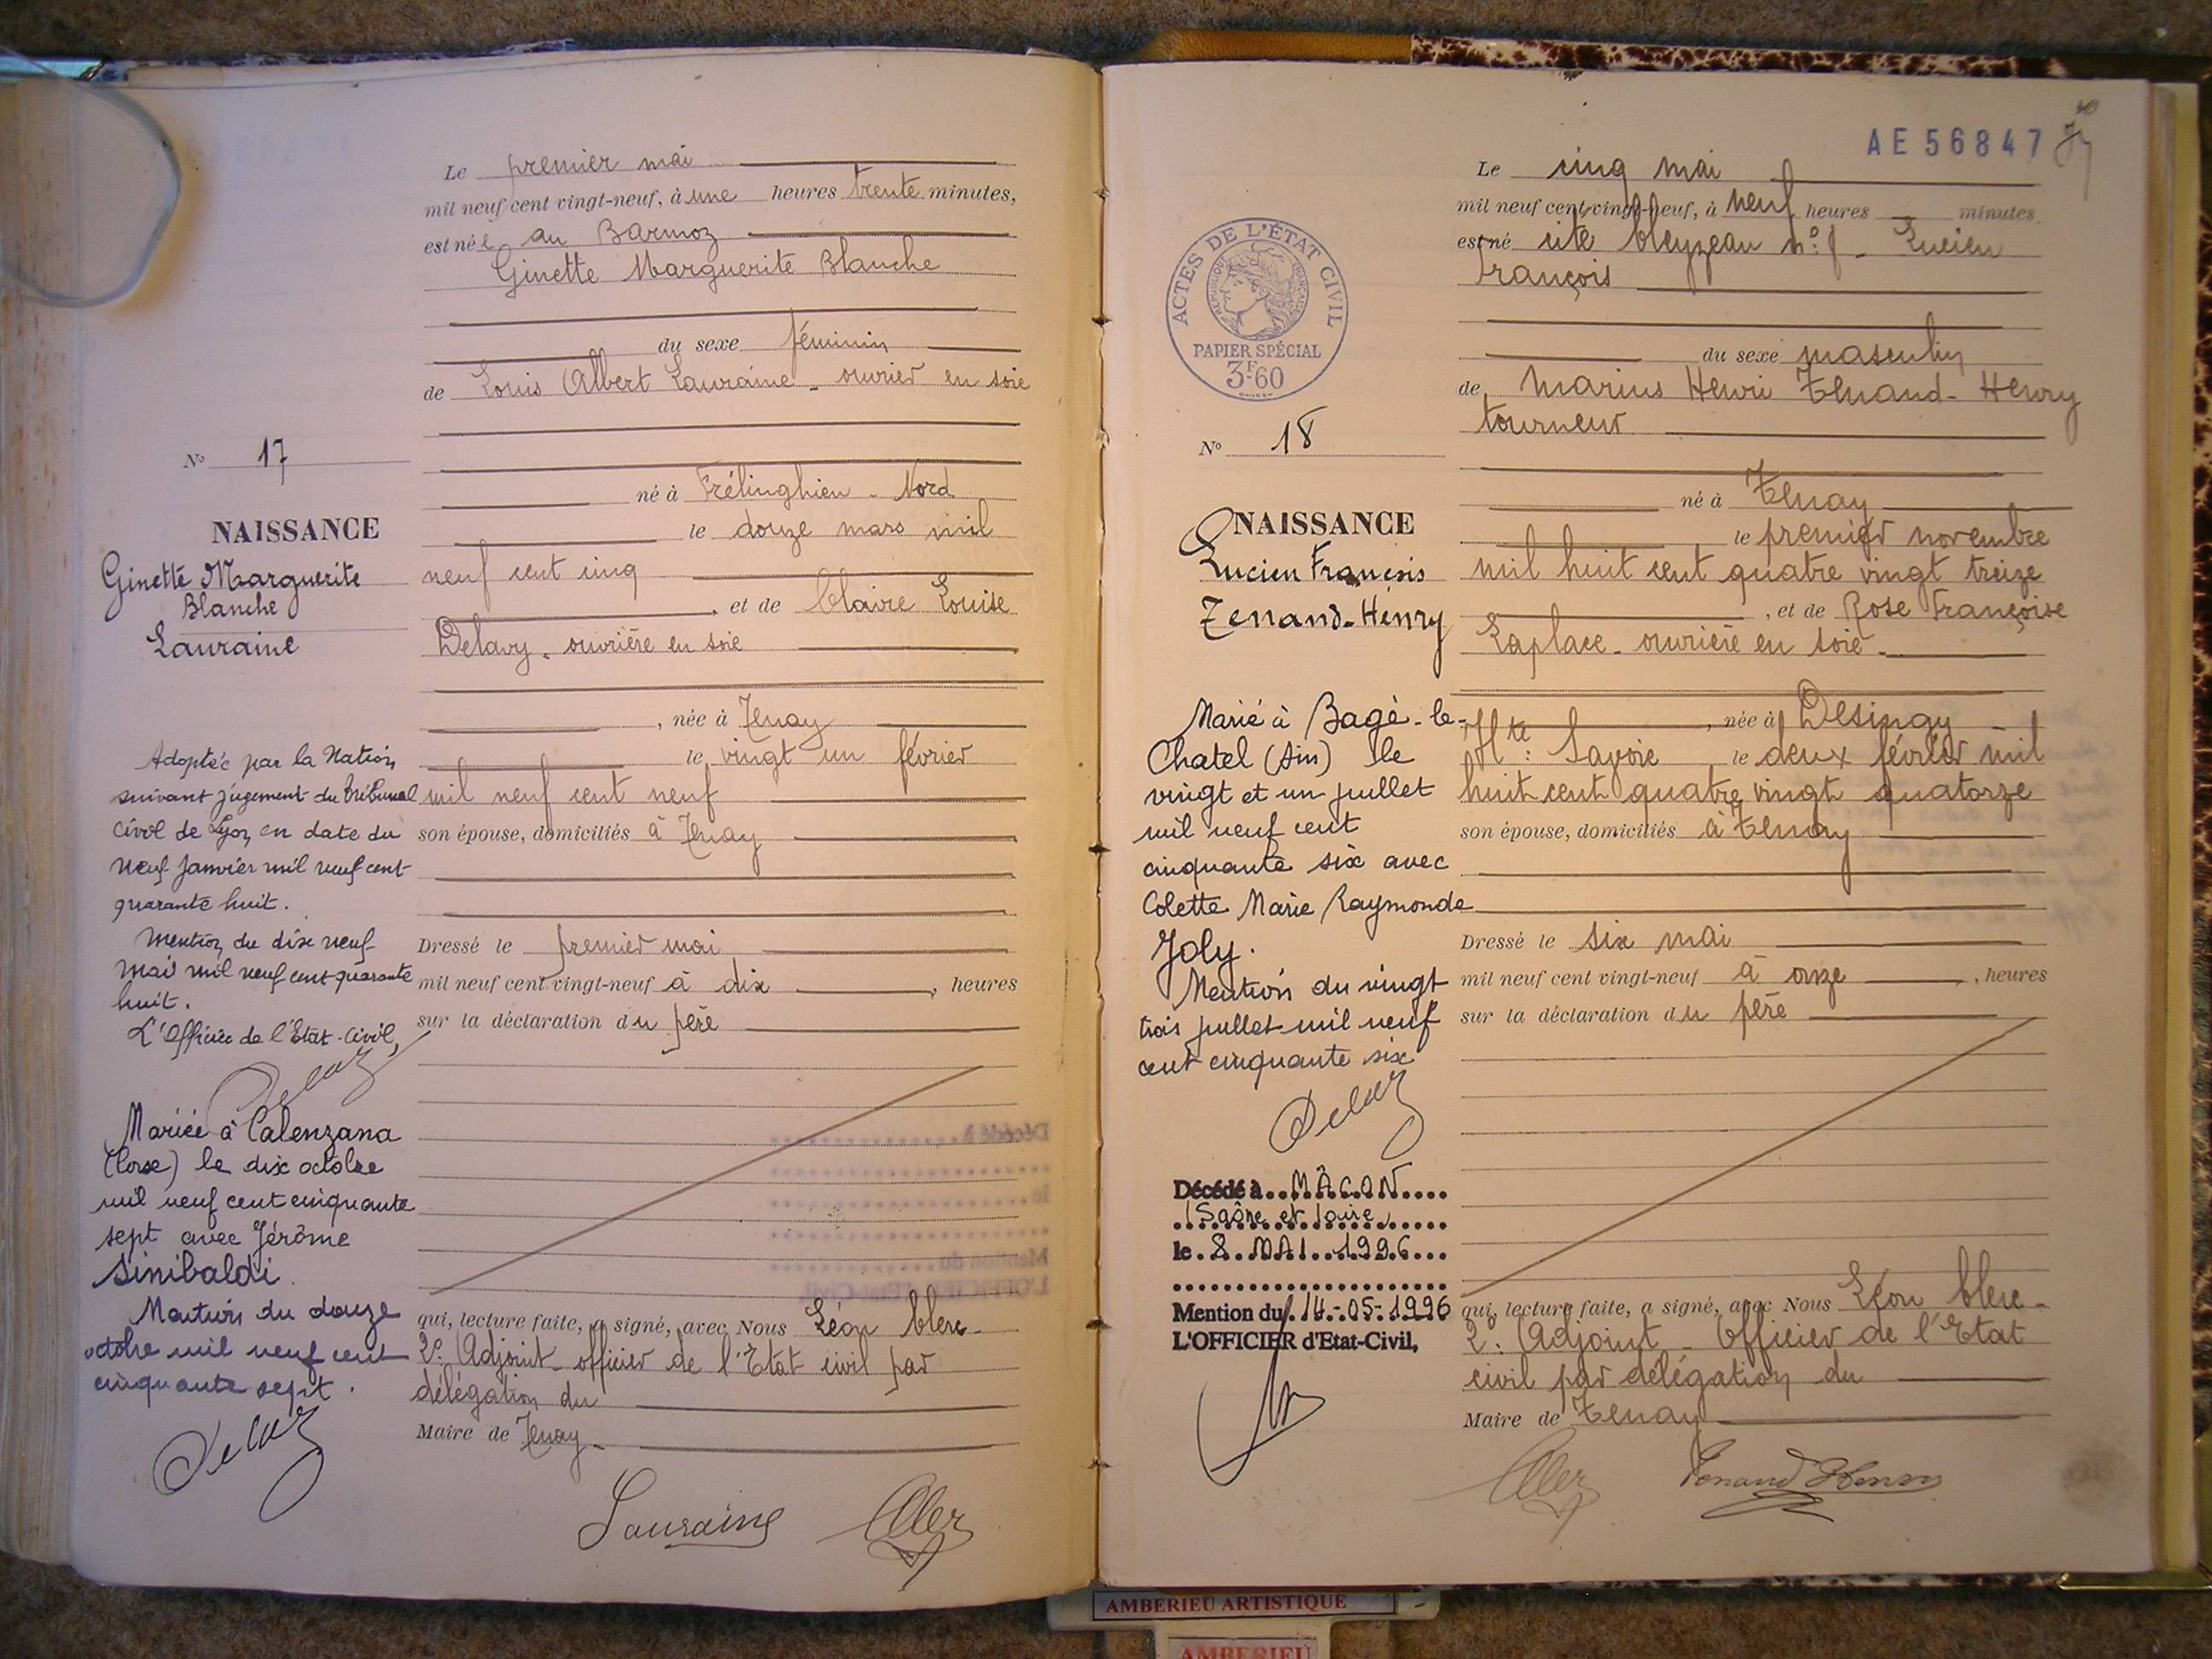 Le premier mai
mil neuf cent vingt-neuf, à une heures trente minutes,
est née au Barmoz
Ginette Marguerite Blanche
du sexe féminin
de Louis Albert Lauraine - ouvrier en soie
N° 17
né à Frélinghien - Nord
NAISSANCE
le douze mars mil
Ginette Marguerite
neuf cent cinq
Blanche
, et de Claire Louise
Lauraine
Delavy - ouvrière en soie
, née à Tenay
le vingt un février
mil neuf cent neuf
son épouse, domiciliés à Tenay
Adoptée par la Nation
suivant jugement du tribunal
civil de Lyon en date du
neuf janvier mil neuf cent
quarante huit.
Mention du dix neuf
mai mil neuf cent quarante
huit.
L'Officier de l'Etat-Civil,
Mariée à Calenzana
(Corse) le dix octobre
mil neuf cent cinquante
sept avec Jérôme
Sinibaldi.
Mention du douze
octobre mil neuf cent
cinquante sept.
Dressé le premier mai
mil neuf cent vingt-neuf à dix , heures
sur la déclaration du père
qui, lecture faite, a signé, avec Nous Léon Clerc -
2e Adjoint - officier de l'Etat civil par
délégation du
Maire de Tenay -
Lauraine
AE 56847
Le cinq mai
mil neuf cent vingt-neuf, à neuf heures minutes
est né cité Cleyzeau n°: 1 - Lucien
François
ACTES DE L'ÉTAT CIVIL
RÉPUBLIQUE FRANÇAISE
PAPIER SPÉCIAL
3F60
du sexe masculin
de Marius Henri Tenand-Henry
tourneur
N° 18
né à Tenay
NAISSANCE
le premier novembre
Lucien François
mil huit cent quatre vingt treize
Tenand-Henry
, et de Rose Françoise
Laplace - ouvrière en soie -
, née à Désingy -
Hte: Savoie , le deux février mil
huit cent quatre vingt quatorze
son épouse, domiciliés à Tenay
Marié à Bagé-le-
Chatel (Ain) le
vingt et un juillet
mil neuf cent
cinquante six avec
Colette Marie Raymonde
Joly.
Mention du vingt
trois juillet mil neuf
cent cinquante six
Décédé à MÂCON
(Saône et Loire)
le 8 MAI 1996
Mention du 14-05-1996
L'OFFICIER d'Etat-Civil,
Dressé le six mai
mil neuf cent vingt-neuf à onze , heures
sur la déclaration du père
qui, lecture faite, a signé, avec Nous Léon Clerc -
2: Adjoint - Officier de l'Etat
civil par délégation du
Maire de Tenay
Tenand Henry
AMBERIEU ARTISTIQUE
AMBERIEU